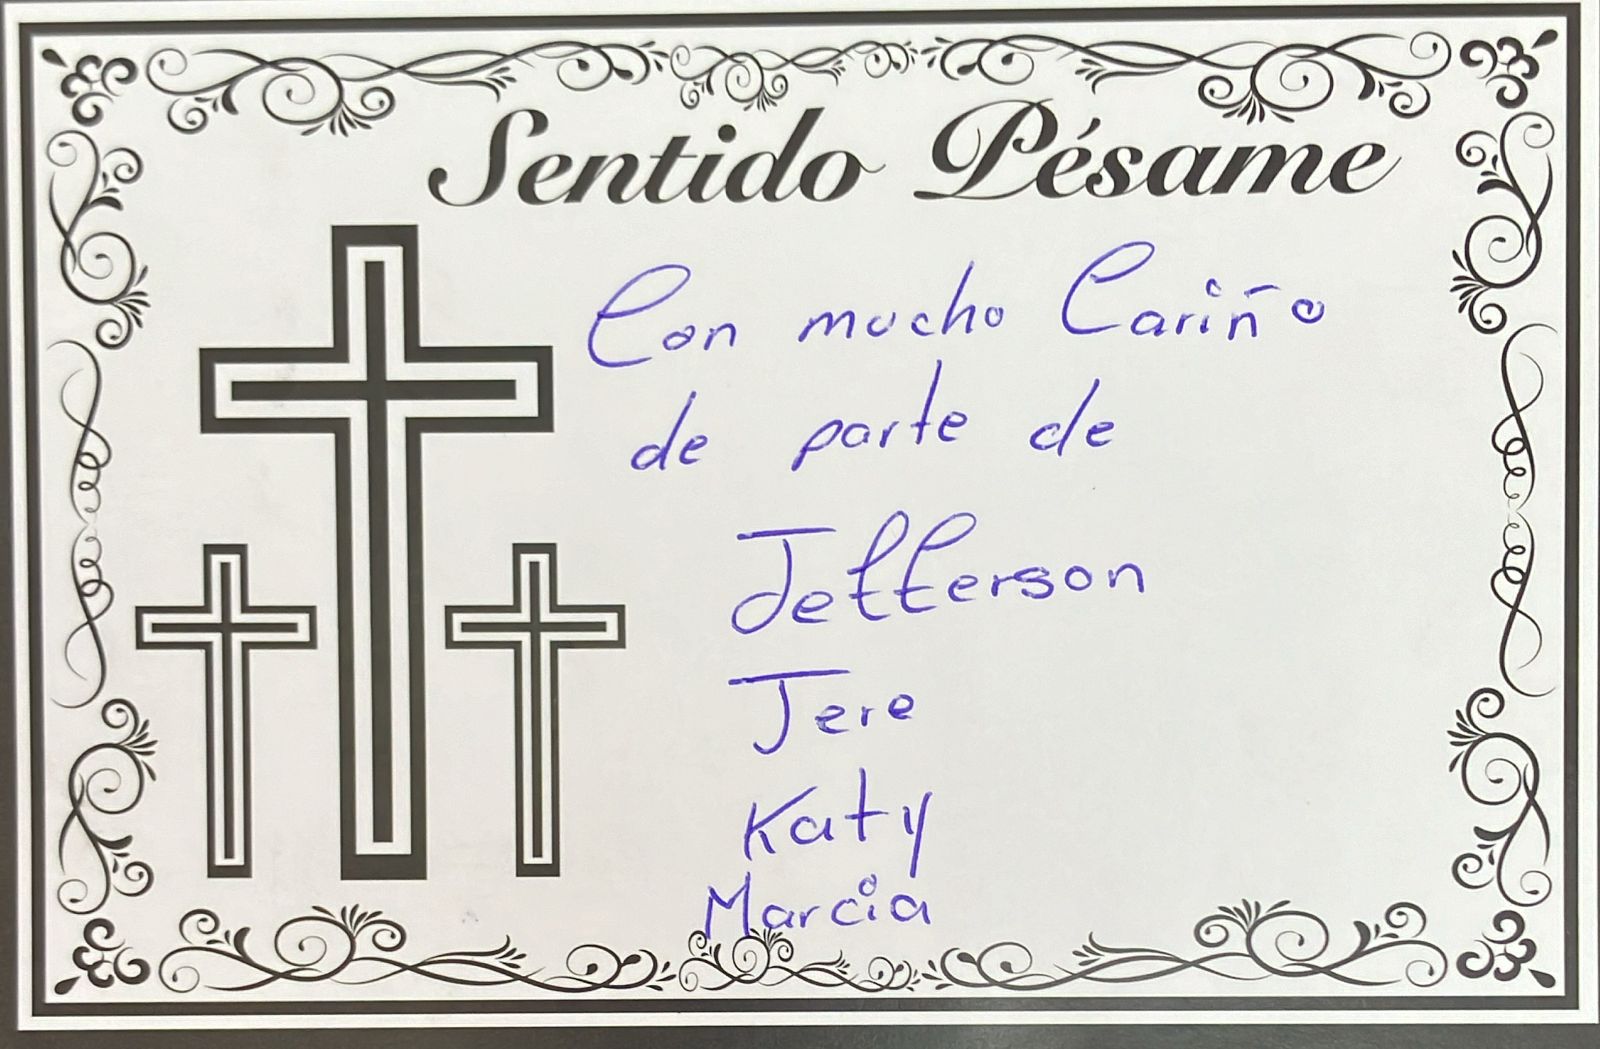 Sentido Pésame
Con mucho Cariño
de parte de
Jefferson
Jere
Katy
Marcia